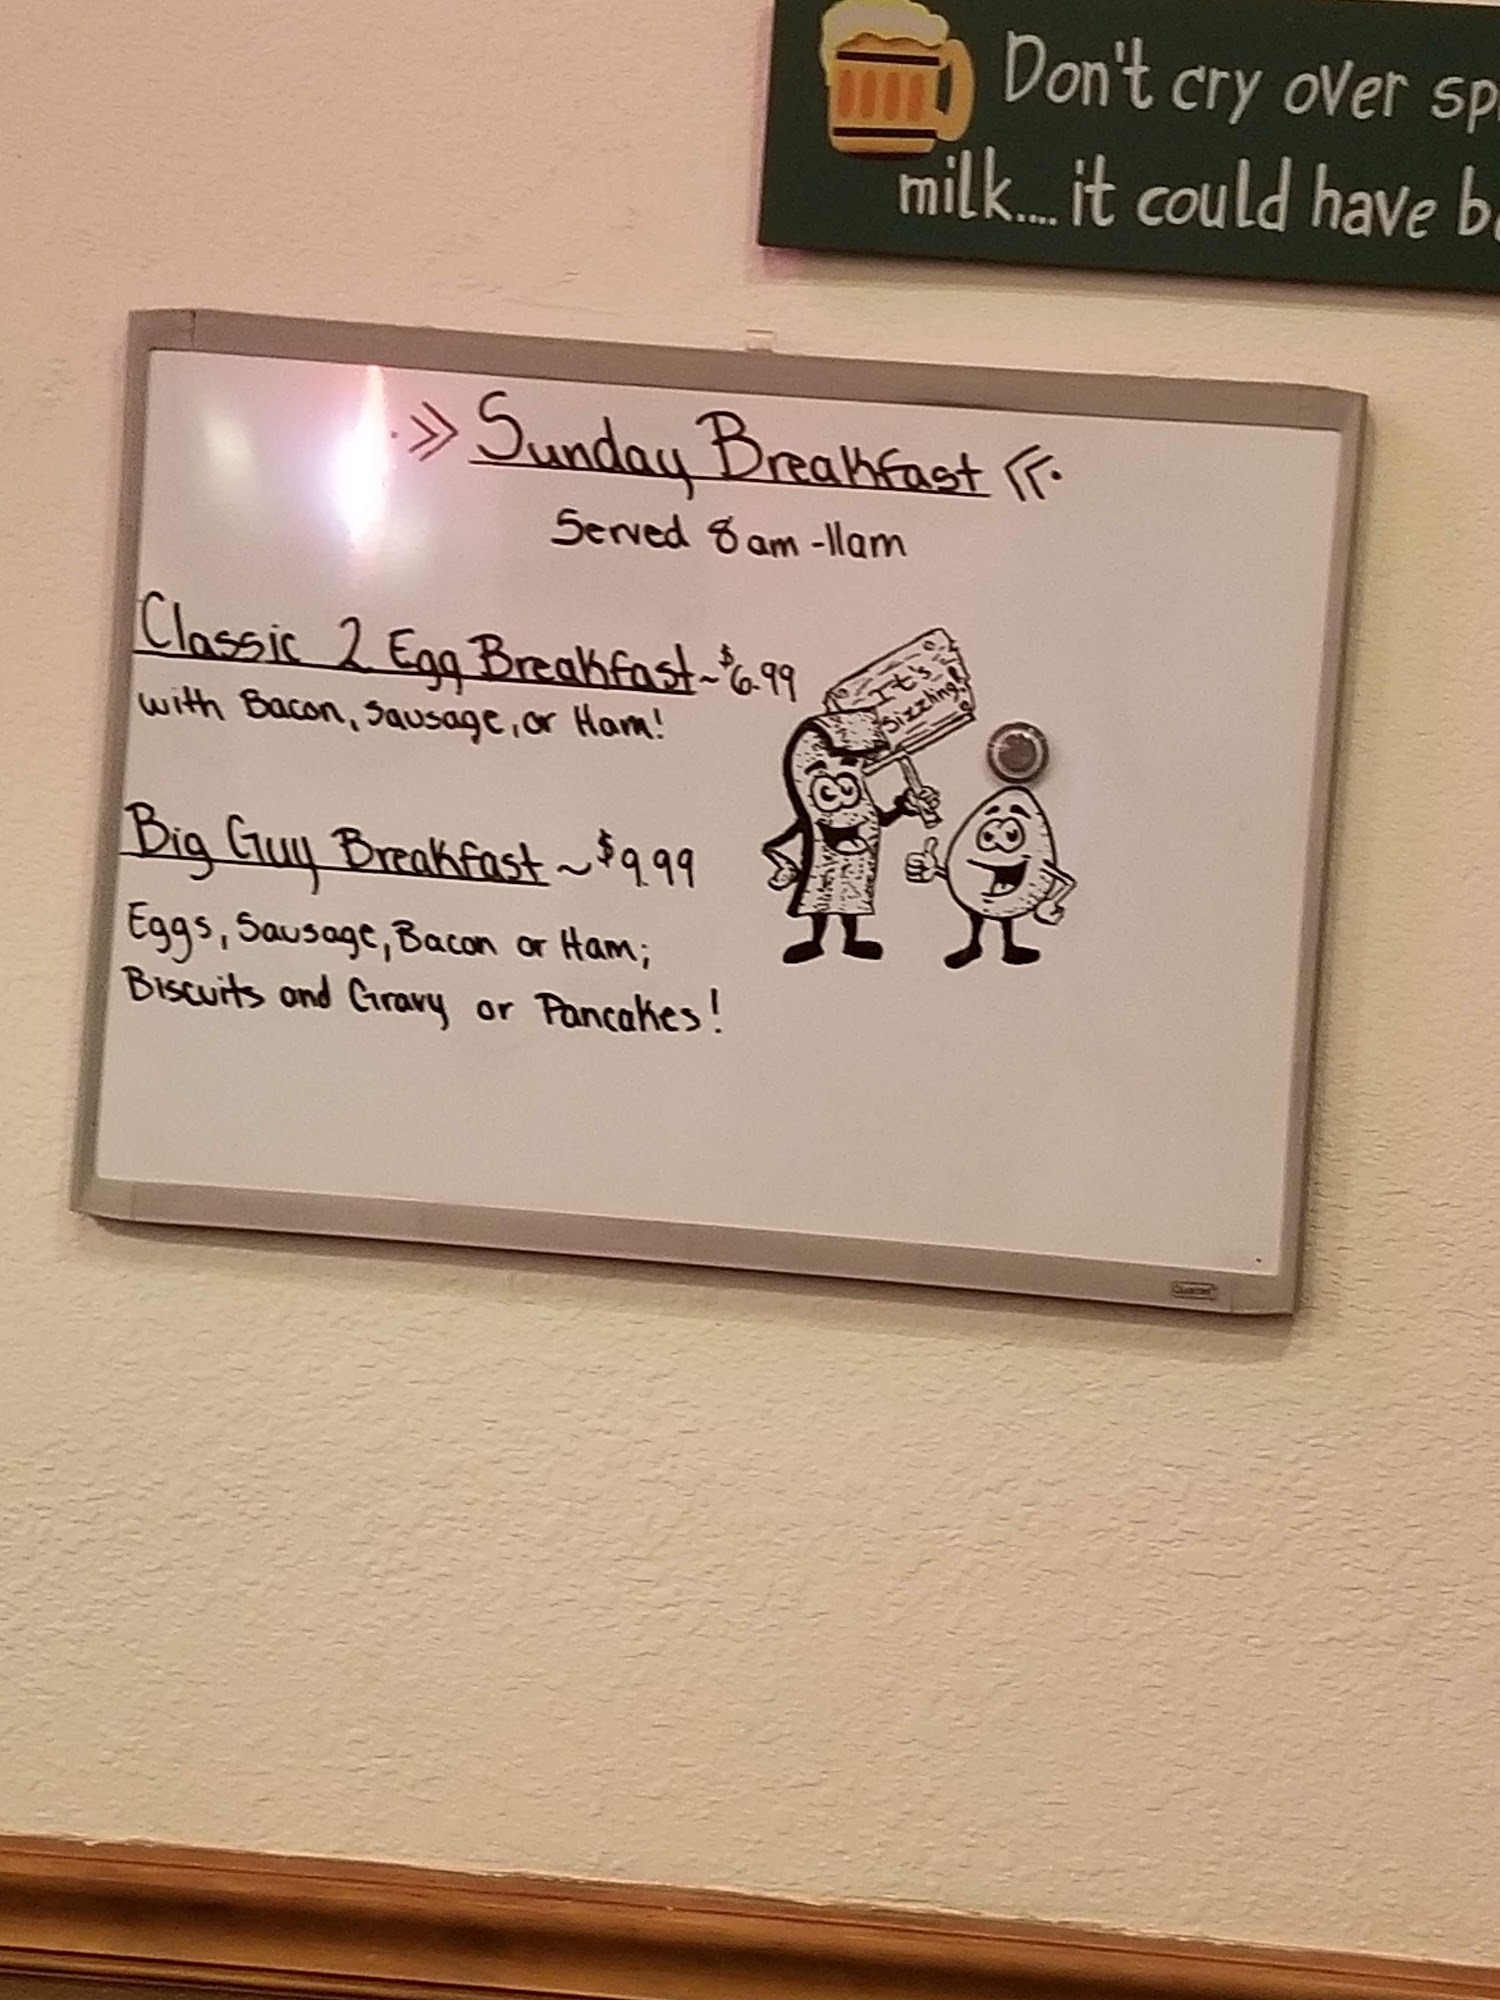 Don't cry over
milk.... it could have
Sunday Breakfast
Served 8am-11am
Classic 2 Egg Breakfast~$6.99
with Bacon, Sausage, or Ham!
It's
Sizzling!
Big Guy Breakfast~$9.99
Eggs, Sausage, Bacon or Ham;
Biscuits and Gravy or Pancakes!
Quartet